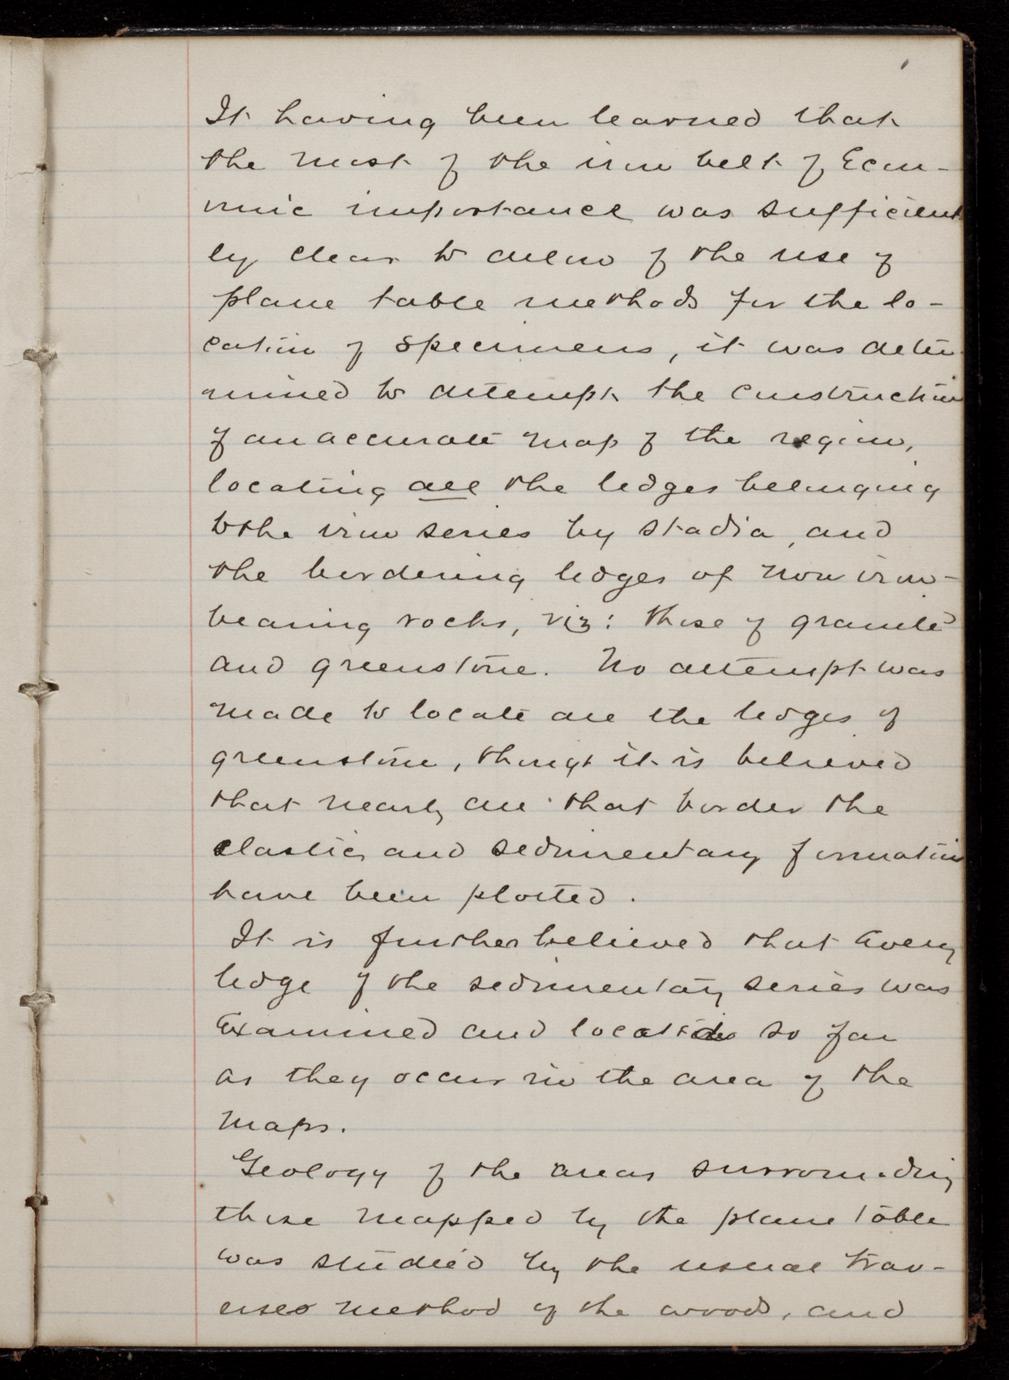 It having been learned that
the most of the iron belt of Econ-
omic importance was sufficient
ly clear to allow of the use of
plane table methods for the lo-
cation of specimens, it was deter
mined to attempt the construction
of an accurate map of the region,
locating all the ledges belonging
to the iron series by stadia, and
the bordering ledges of non iron-
bearing rocks, viz: those of granite
and greenstone. No attempt was
made to locate all the ledges of
greenstone, though it is believed
that nearly all that border the
clastic and sedimentary formation
have been plotted.
It is further believed that every
ledge of the sedimentary series was
Examined and located so far
as they occur in the area of the
maps.
Geology of the areas surrounding
those mapped by the plane table
was studied by the usual trav-
erses method of the woods, and